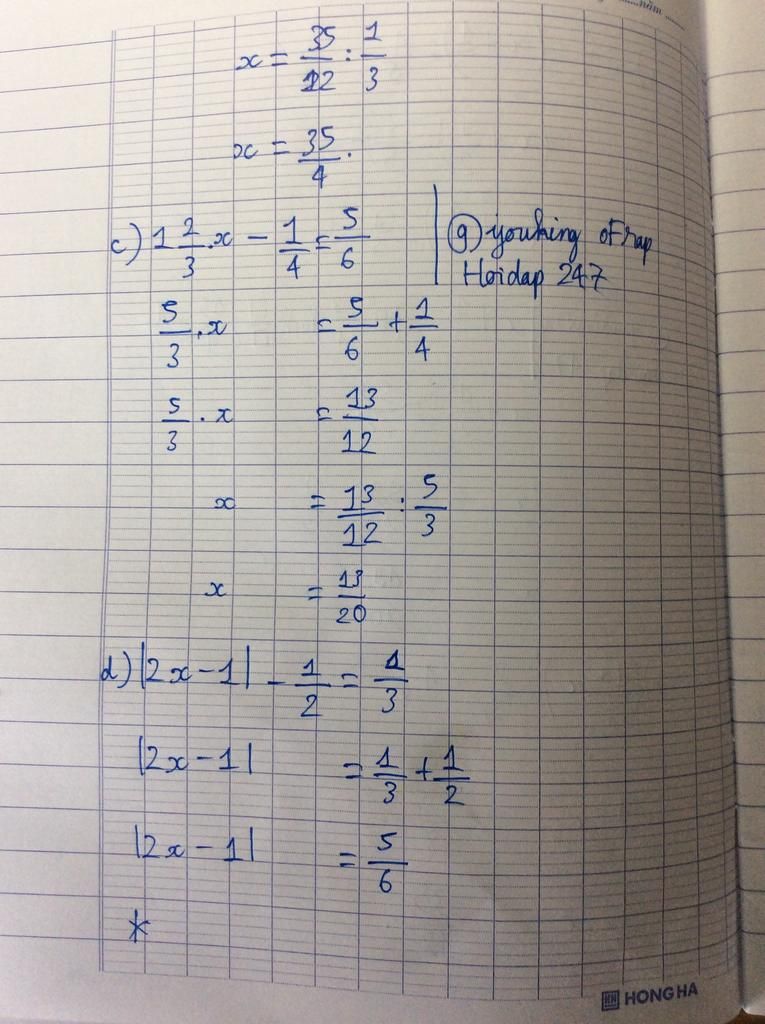 x = 35/12 : 1/3
x = 35/4.
c) 1 2/3 . x - 1/4 = 5/6
@ youking of rap
Hoidap 247
5/3 . x = 5/6 + 1/4
5/3 . x = 13/12
x = 13/12 : 5/3
x = 13/20
d) |2x - 1| - 1/2 = 1/3
|2x - 1| = 1/3 + 1/2
|2x - 1| = 5/6
*
HONG HA